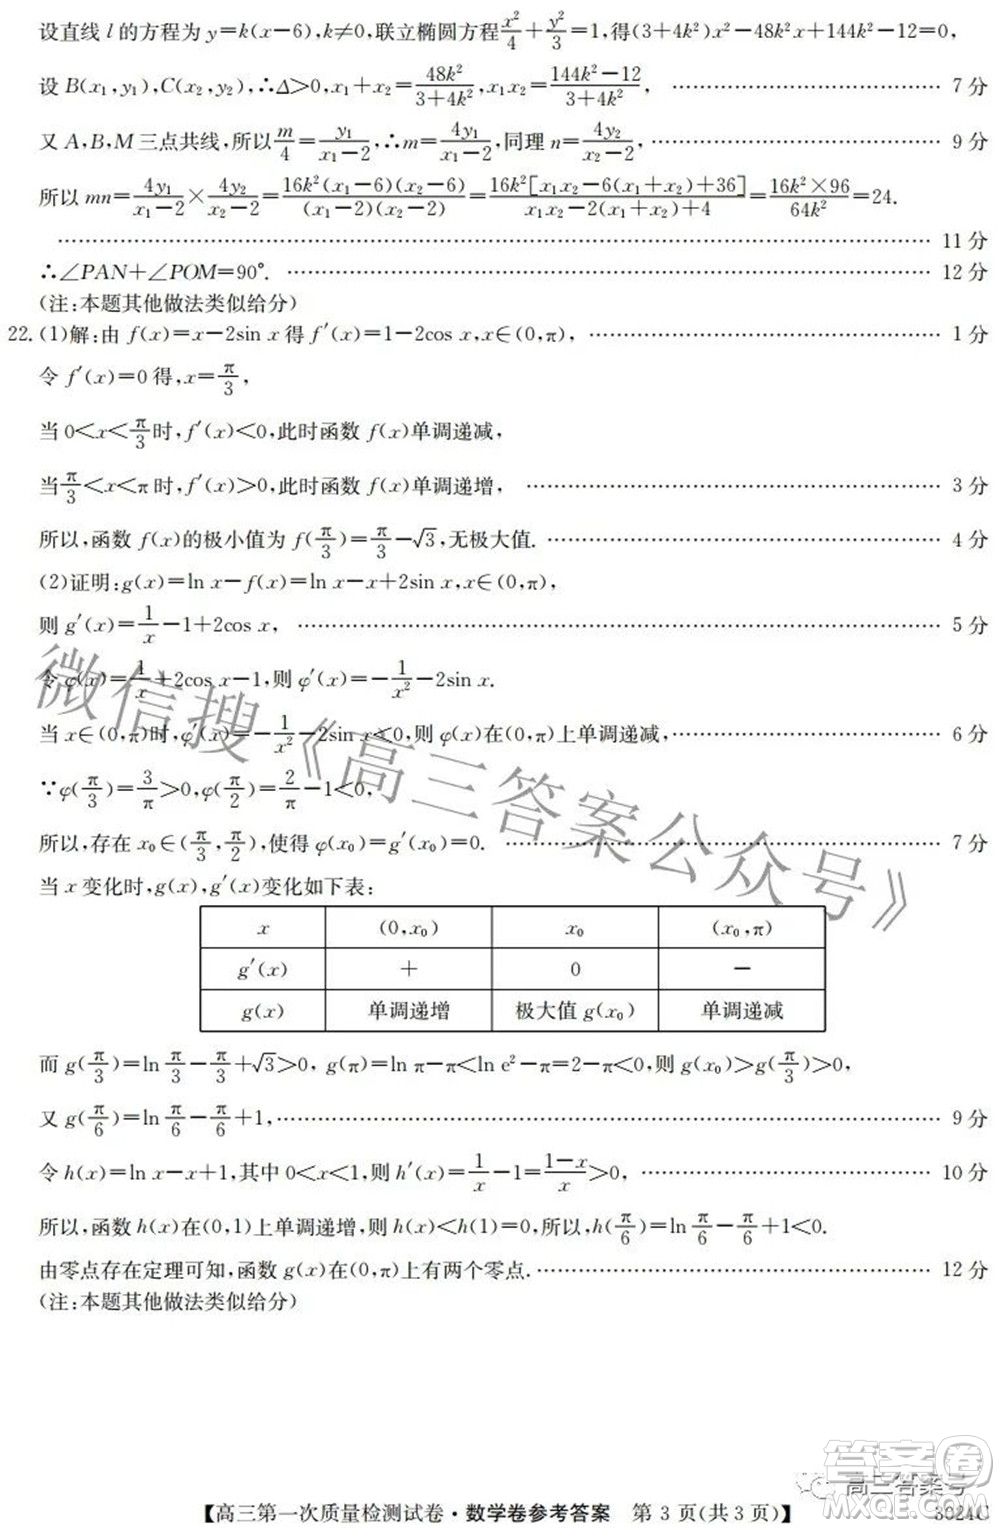 设直线 l 的方程为 y=k(x-6),k≠0,联立椭圆方程 x²/4+y²/3=1,得(3+4k²)x²-48k²x+144k²-12=0,
设 B(x₁,y₁),C(x₂,y₂),∴Δ>0,x₁+x₂=48k²/(3+4k²),x₁x₂=(144k²-12)/(3+4k²), …… 7 分
又 A,B,M 三点共线,所以 m/4=y₁/(x₁-2),∴m=4y₁/(x₁-2),同理 n=4y₂/(x₂-2), …… 9 分
所以 mn=4y₁/(x₁-2)×4y₂/(x₂-2)=16k²(x₁-6)(x₂-6)/((x₁-2)(x₂-2))=16k²[x₁x₂-6(x₁+x₂)+36]/(x₁x₂-2(x₁+x₂)+4)=16k²×96/64k²=24.
…… 11 分
∴∠PAN+∠POM=90°. …… 12 分
(注:本题其他做法类似给分)
22.(1)解:由 f(x)=x-2sin x 得 f′(x)=1-2cos x,x∈(0,π), …… 1 分
令 f′(x)=0 得,x=π/3,
当 0<x<π/3时,f′(x)<0,此时函数 f(x)单调递减,
当π/3<x<π 时,f′(x)>0,此时函数 f(x)单调递增, …… 3 分
所以,函数 f(x)的极小值为 f(π/3)=π/3-√3,无极大值. …… 4 分
(2)证明:g(x)=ln x-f(x)=ln x-x+2sin x,x∈(0,π),
则 g′(x)=1/x-1+2cos x, …… 5 分
令 φ(x)=1/x+2cos x-1,则 φ′(x)=-1/x²-2sin x.
当 x∈(0,π)时,φ′(x)=-1/x²-2sin x<0,则 φ(x)在(0,π)上单调递减, …… 6 分
∵φ(π/3)=3/π>0,φ(π/2)=2/π-1<0,
所以,存在 x₀∈(π/3,π/2),使得 φ(x₀)=g′(x₀)=0. …… 7 分
当 x 变化时,g(x),g′(x)变化如下表:
x (0,x₀) x₀ (x₀,π)
g′(x) + 0 -
g(x) 单调递增 极大值 g(x₀) 单调递减
而 g(π/3)=ln π/3-π/3+√3>0, g(π)=ln π-π<ln e²-π=2-π<0,则 g(x₀)>g(π/3)>0,
又 g(π/6)=ln π/6-π/6+1, …… 9 分
令 h(x)=ln x-x+1,其中 0<x<1,则 h′(x)=1/x-1=(1-x)/x>0, …… 10 分
所以,函数 h(x)在(0,1)上单调递增,则 h(x)<h(1)=0,所以,h(π/6)=ln π/6-π/6+1<0.
由零点存在定理可知,函数 g(x)在(0,π)上有两个零点. …… 12 分
(注:本题其他做法类似给分)
微信搜《高三答案公众号》
答案圈
高三答案号
MXQE.COM
【高三第一次质量检测试卷·数学卷参考答案 第 3 页(共 3 页)】
3024C